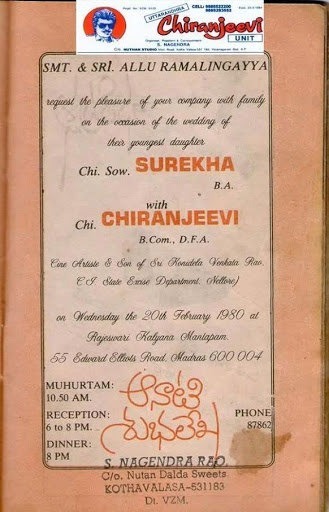 UTTARANDHRA
CELL: 9885522200
Chiranjeevi
UNIT
S. NAGENDRA
SMT. & SRI. ALLU RAMALINGAYYA
request the pleasure of your company with family
on the occasion of the wedding of
their youngest daughter
Chi. Sow. SUREKHA
B.A.
with
Chi. CHIRANJEEVI
B.Com., D.F.A.
Cine Artiste & Son of Sri Konidela Venkata Rao,
C.I. State Excise Department, Nellore)
on Wednesday the 20th February 1980 at
Rajeswari Kalyana Mantapam.
55 Edward Elliots Road, Madras 600 004
MUHURTAM:
10.50 AM.
RECEPTION:
6 to 8 PM.
DINNER:
8 PM
ఆనాటి
శుభలేఖ
PHONE
87862
S. NAGENDRA RAO
C/o. Nutan Dalda Sweets
KOTHAVALASA-531183
Dt. VZM.